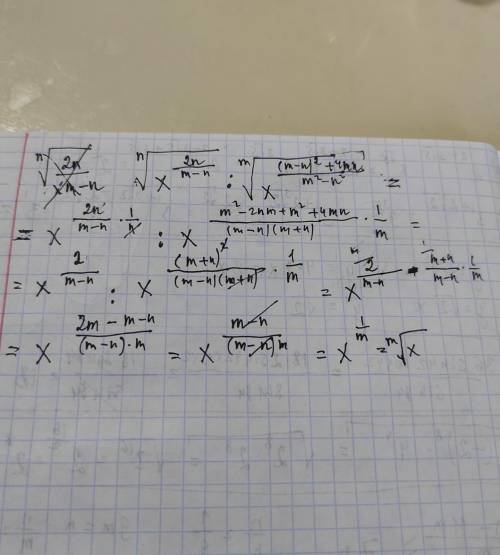 ⁿ√(x^(2n/(m-n))) : ᵐ√(x^(((m-n)²+4mn)/(m²-n²))) =
= x^(2n/(m-n) · 1/n) : x^((m²-2nm+m²+4mn)/((m-n)(m+n)) · 1/m) =
= x^(2/(m-n)) : x^((m+n)²/((m-n)(m+n)) · 1/m) = x^(2/(m-n) - (m+n)/(m-n) · 1/m)
= x^((2m-m-n)/((m-n)·m)) = x^((m-n)/((m-n)m)) = x^(1/m) = ᵐ√x